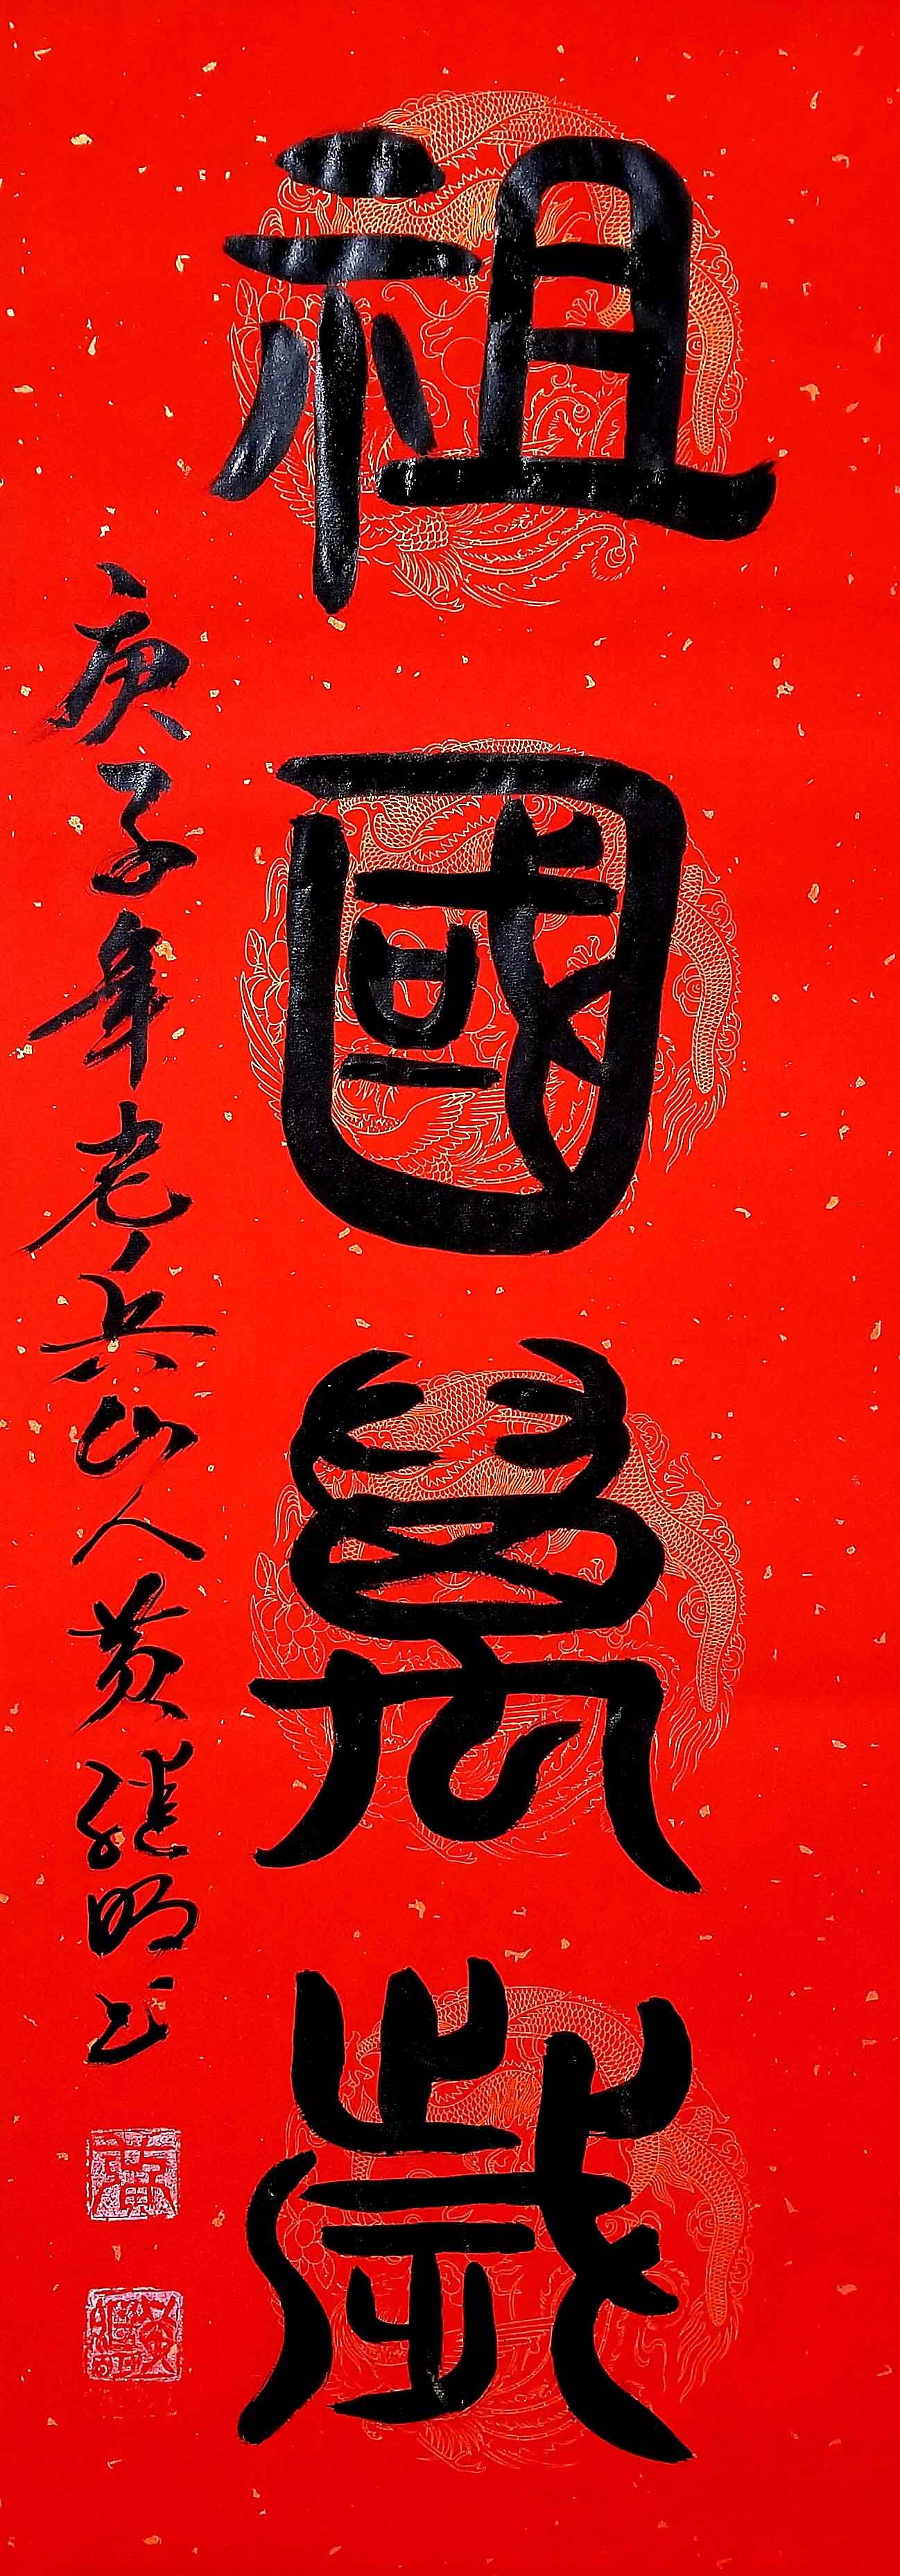 祖國萬歲
庚子年老兵山人黄继明书